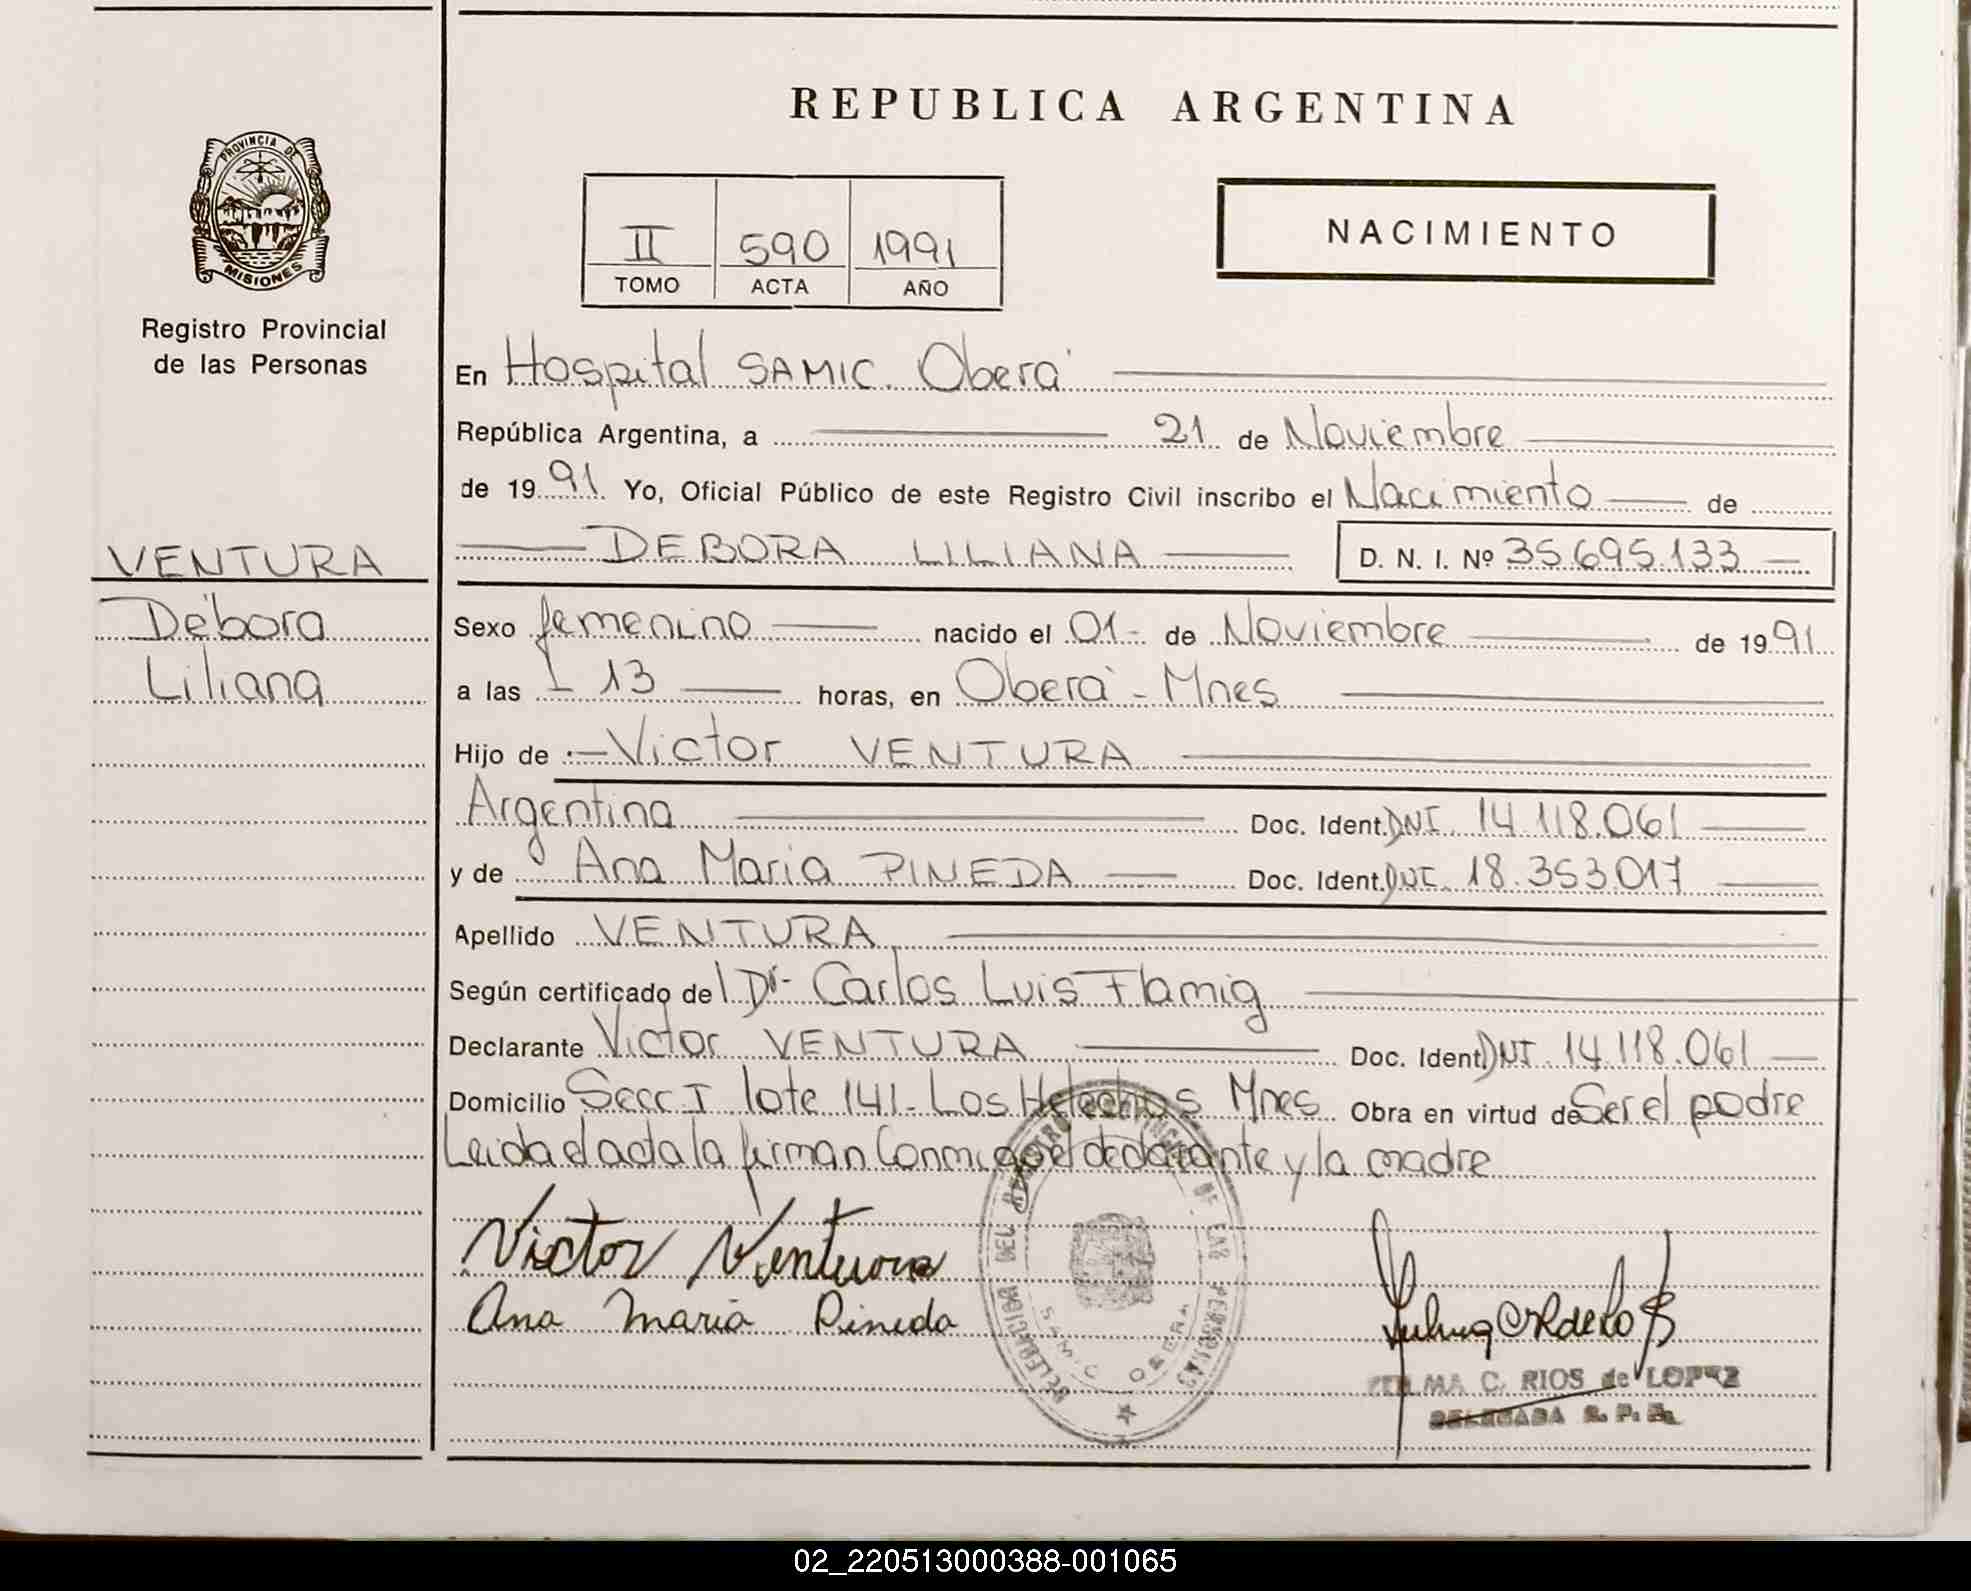 REPUBLICA ARGENTINA
PROVINCIA DE
MISIONES
Registro Provincial
de las Personas
II 590 1991
TOMO ACTA AÑO
NACIMIENTO
En Hospital SAMIC. Oberá
República Argentina, a 21 de Noviembre
de 1991 Yo, Oficial Público de este Registro Civil inscribo el Nacimiento de
VENTURA
Débora
Liliana
DEBORA LILIANA D. N. I. Nº 35.695.133
Sexo femenino nacido el 01- de Noviembre de 1991
a las 13 horas, en Oberá - Mnes
Hijo de Victor VENTURA
Argentina Doc. Ident. DNI. 14.118.061
y de Ana Maria PINEDA Doc. Ident. DNI. 18.353.017
Apellido VENTURA
Según certificado del Dr- Carlos Luis Flamig
Declarante Victor VENTURA Doc. Ident. DNI. 14.118.061
Domicilio Secc I lote 141- Los Helechos Mnes Obra en virtud de Ser el padre
Leida el acta la firman Conmigo el declarante y la madre
Victor Ventura
Ana Maria Pineda
DELEGACION DEL REGISTRO PROVINCIAL DE LAS PERSONAS
SAMIC OBERA
C. RIOS de LOPEZ
DELEGADA R. P. P.
02_220513000388-001065